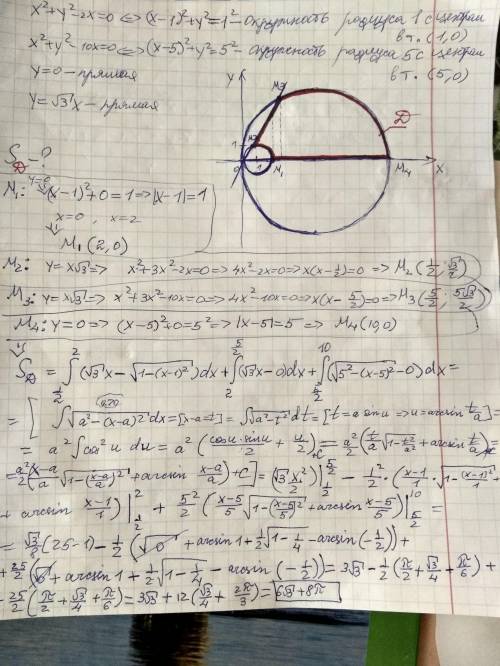 x²+y²-2x=0 <=> (x-1)²+y²=1² - окружность радиуса 1 с центром
в т. (1,0)
x²+y²-10x=0 <=> (x-5)²+y²=5² - окружность радиуса 5 с центром
в т. (5,0)
y=0 - прямая
y=√3x - прямая
Y
M3
D
M2
1
0
1
M1
M4
X
S_D - ?
M₁: y=0 => (x-1)²+0=1 => |x-1|=1
x=0, x=2
M₁(2,0)
M₂: y=x√3 => x²+3x²-2x=0 => 4x²-2x=0 => x(x-1/2)=0 => M₂(1/2; √3/2)
M₃: y=x√3 => x²+3x²-10x=0 => 4x²-10x=0 => x(x-5/2)=0 => M₃(5/2; 5√3/2)
M₄: y=0 => (x-5)²+0=5² => |x-5|=5 => M₄(10,0)
S_D = ∫_{1/2}^{2}(√3x-√(1-(x-1)²))dx + ∫_{2}^{5/2}(√3x-0)dx + ∫_{5/2}^{10}(√(5²-(x-5)²)-0)dx =
= [∫√(a²-(x-a)²)dx = [x-a=t] = ∫√(a²-t²)dt = [t=a sin u => u=arcsin t/a] =
= a²∫cos²u du = a²(cosu·sinu/2 + u/2)+C = a²/2(t/a √(1-t²/a²) + arcsin t/a)+C =
= a²/2(x-a/a √(1-(x-a/a)²) + arcsin x-a/a)+C] = (√3 x²/2)|_{1/2}^{5/2} - 1²/2·(x-1/1 √(1-(x-1)²/1) +
+ arcsin x-1/1)|_{1/2}^{2} + 5²/2(x-5/5 √(1-(x-5/5)²) + arcsin x-5/5)|_{5/2}^{10} =
= √3/8(25-1) - 1/2(√0 + arcsin 1 + 1/2√(1-1/4) - arcsin(-1/2)) +
+ 25/2(√0 + arcsin 1 + 1/2√(1-1/4) - arcsin(-1/2)) = 3√3 - 1/2(π/2+√3/4+π/6) +
+ 25/2(π/2+√3/4+π/6) = 3√3 + 12(√3/4+2π/3) = 6√3+8π